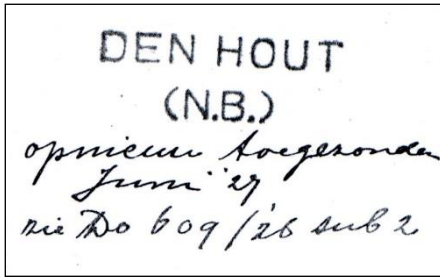 DEN HOUT
(N.B.)
opnieuw toegezonden
Juni '27
zie Do 609/'26 sub 2